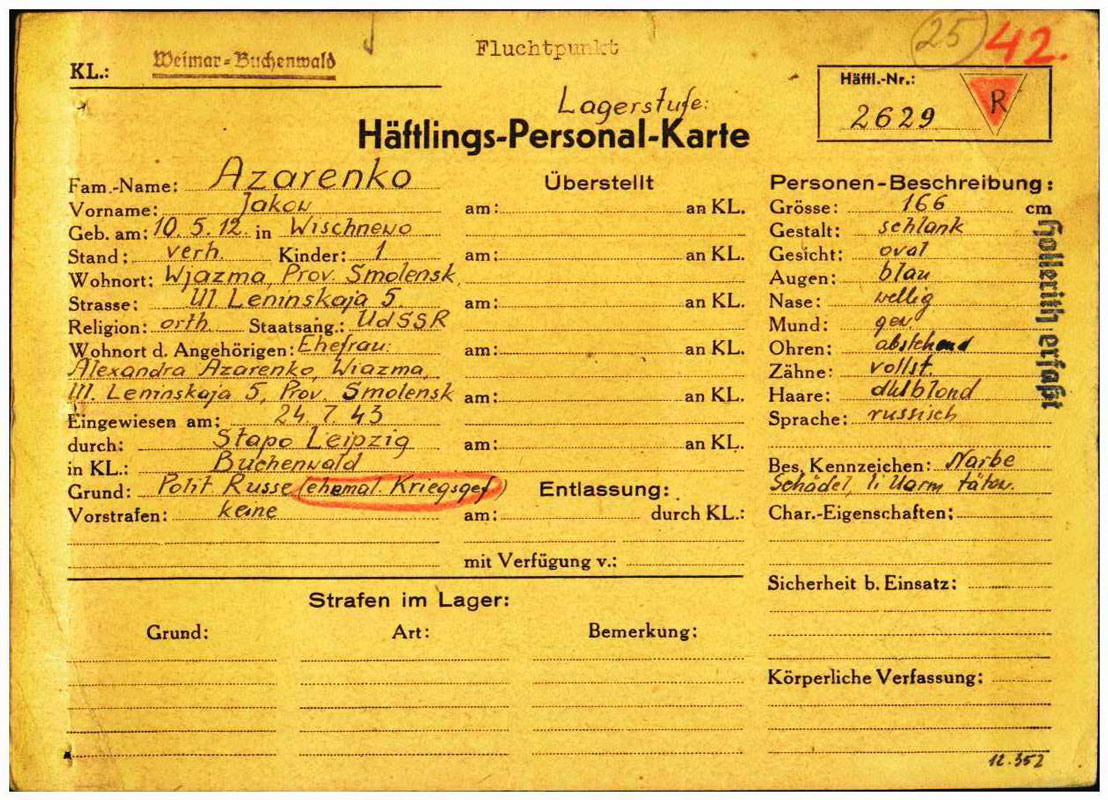 Fluchtpunkt
25 42.
KL.: Weimar-Buchenwald
Häftl.-Nr.:
2629 R
Lagerstufe:
Häftlings-Personal-Karte
Fam.-Name: Azarenko
Vorname: Jakow
Geb. am: 10.5.12. in Wischnewo
Stand: verh. Kinder: 1
Wohnort: Wjazma, Prov. Smolensk
Strasse: Ul Leninskaja 5
Religion: orth. Staatsang.: UdSSR
Wohnort d. Angehörigen: Ehefrau:
Alexandra Azarenko, Wiazma,
Ul. Leninskaja 5, Prov. Smolensk
Eingewiesen am: 24.7.43
durch: Stapo Leipzig
in KL.: Buchenwald
Grund: Polit Russe (ehemal. Kriegsgef)
Vorstrafen: keine
Überstellt
am: an KL.
am: an KL.
am: an KL.
am: an KL.
am: an KL.
am: an KL.
Entlassung:
am: durch KL.:
mit Verfügung v.:
Personen-Beschreibung:
Grösse: 166 cm
Gestalt: schlank
Gesicht: oval
Augen: blau
Nase: wellig
Mund: gew.
Ohren: abstehend
Zähne: vollst.
Haare: dklblond
Sprache: russich
Bes. Kennzeichen: Narbe
Schädel, li. Uarm tätow.
Char.-Eigenschaften:
Sicherheit b. Einsatz:
Körperliche Verfassung:
Hollerith erfaßt
Strafen im Lager:
Grund: Art: Bemerkung:
12.352